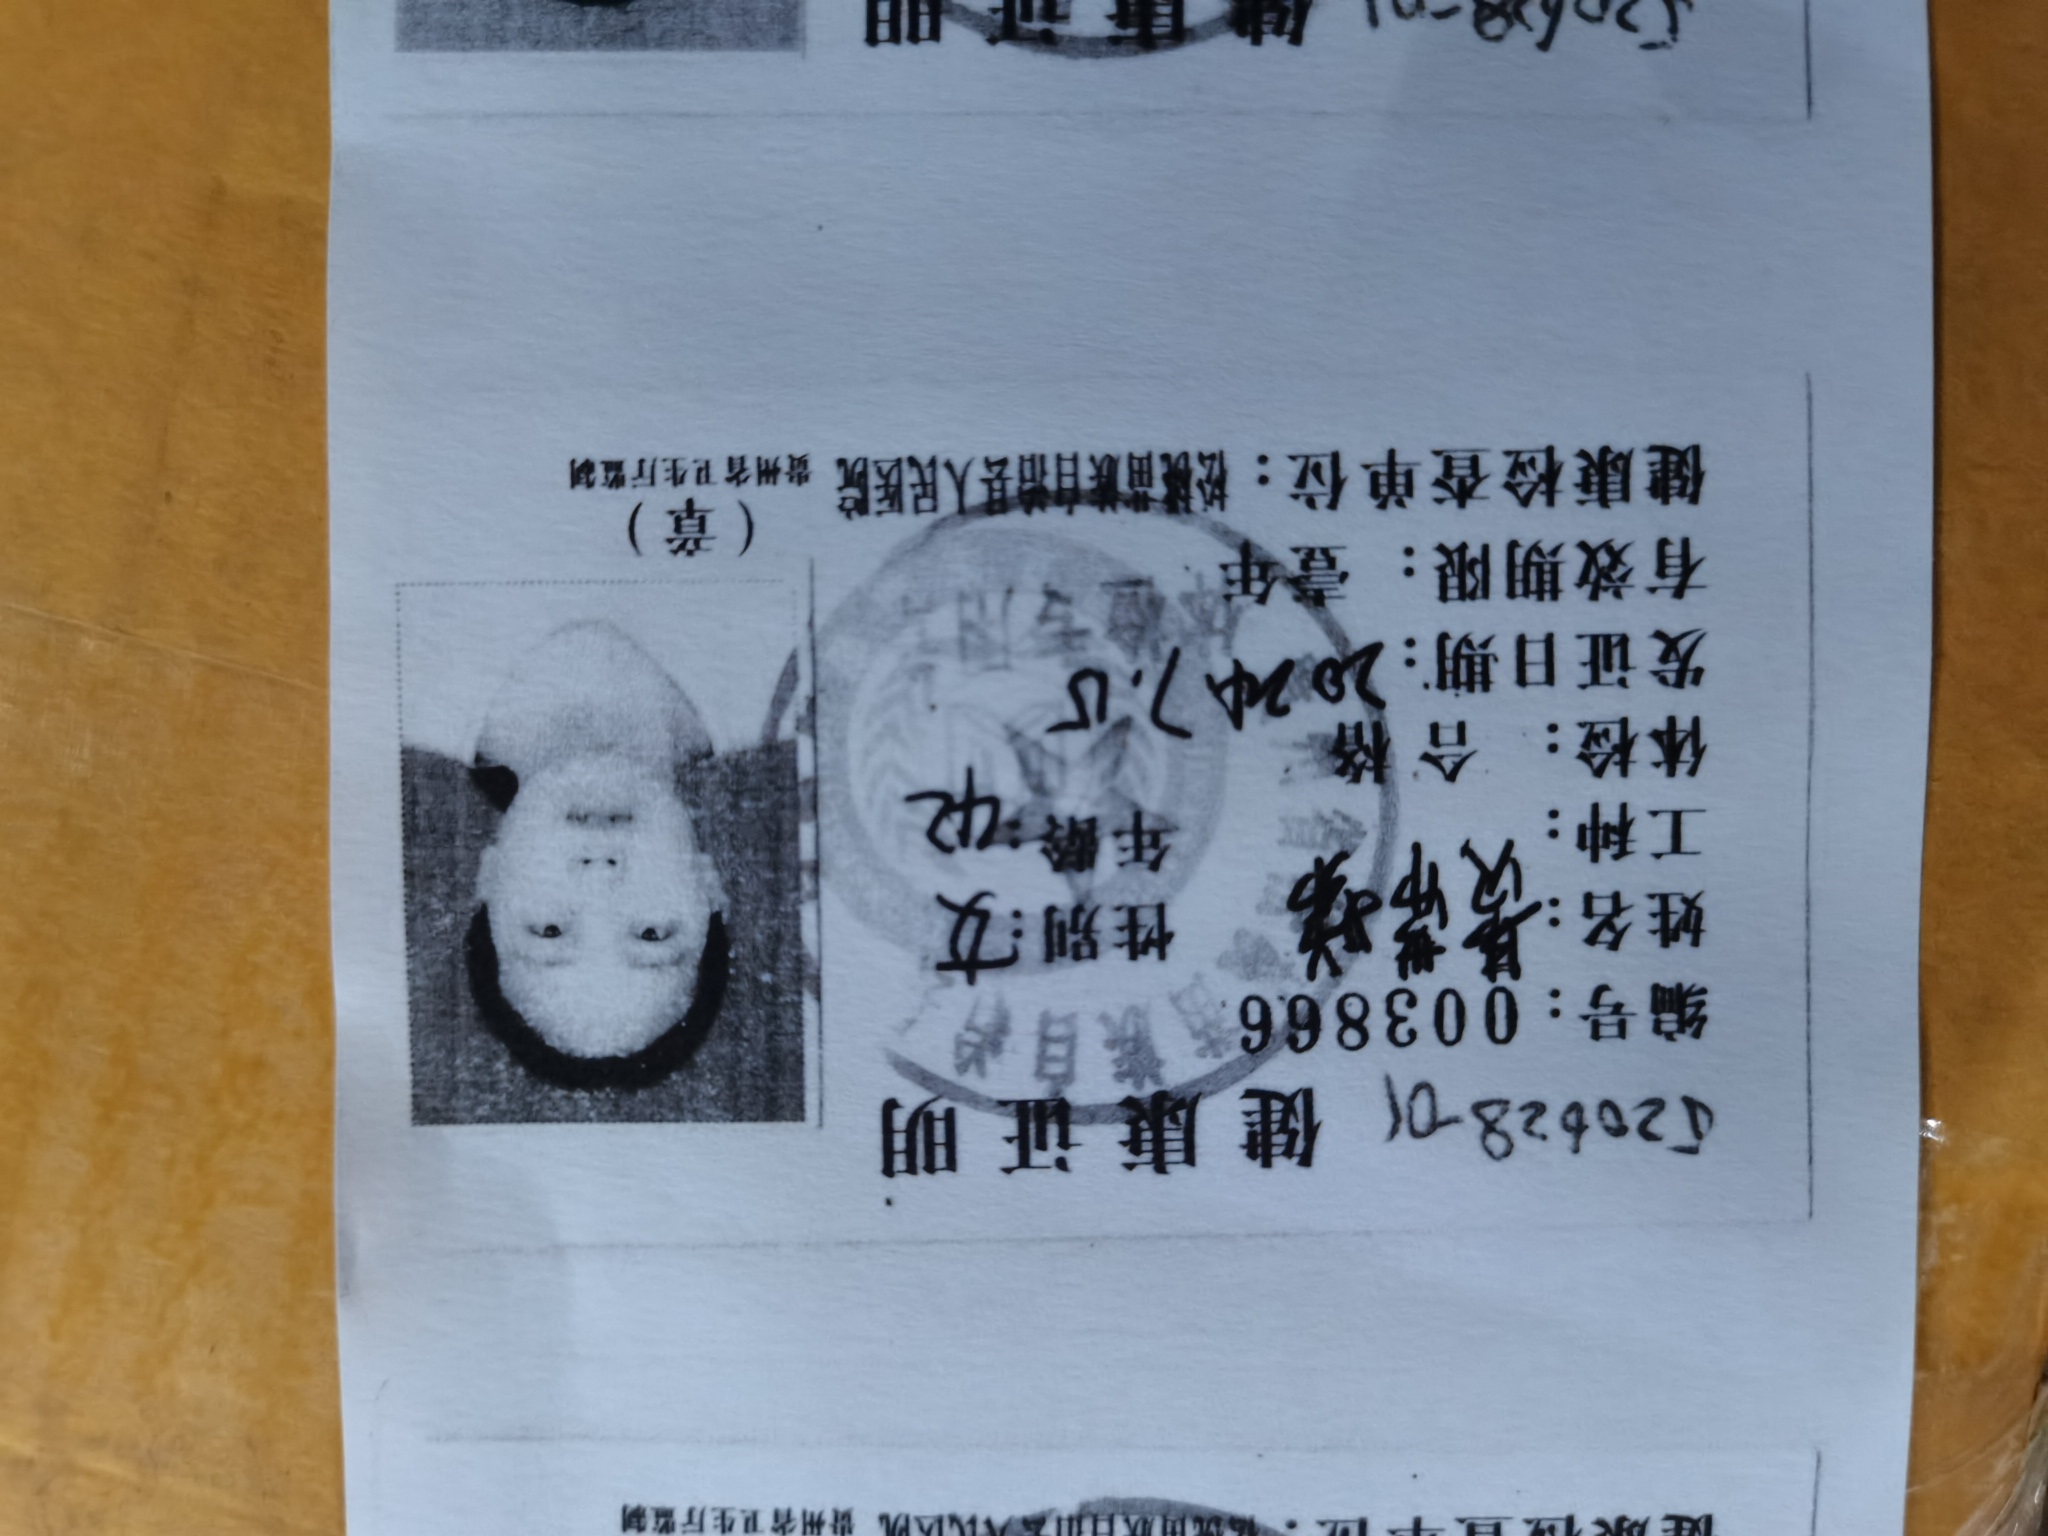 健康证明
520628-01
520628-01 健康证明
编号：003866
姓名： 性别：女
工种： 年龄：42
体检：合格
发证日期：2024 7.15
有效期限：壹年
健康检查单位：松桃苗族自治县人民医院
（章）
贵州省卫生厅监制
健康检查单位：松桃苗族自治县人民医院 贵州省卫生厅监制